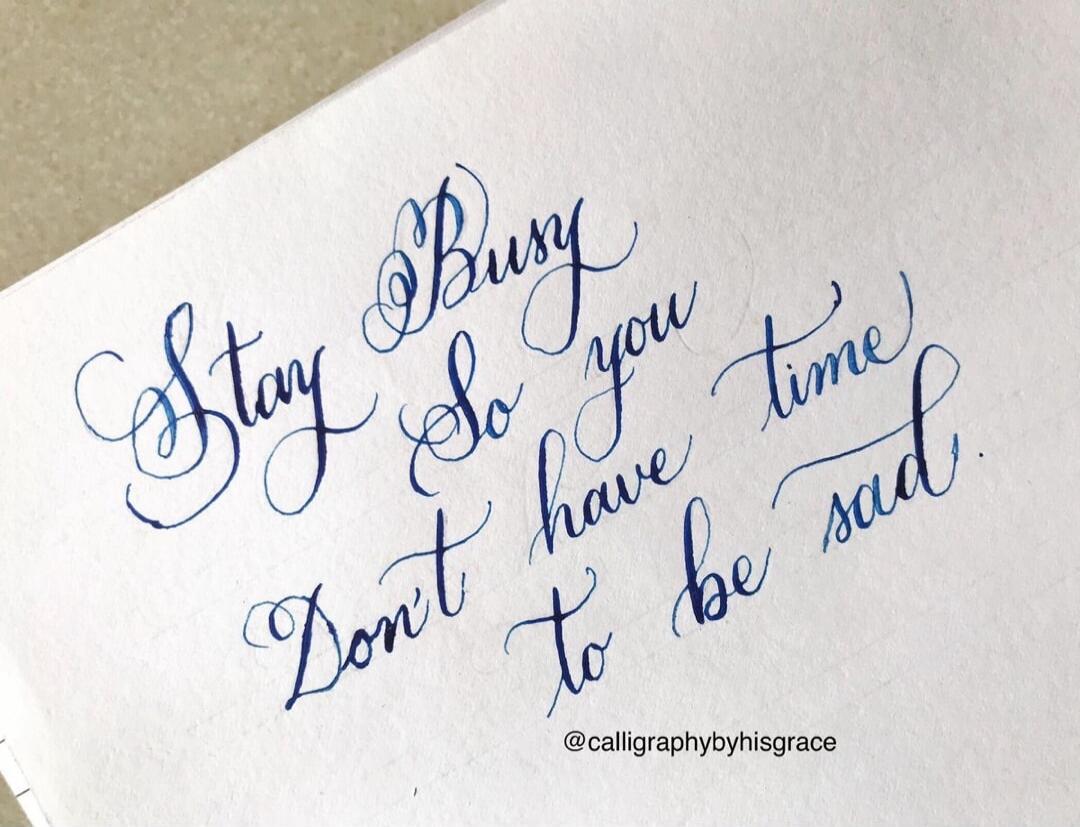 Stay Busy
So you
Don't have time
to be sad.
@calligraphybyhisgrace